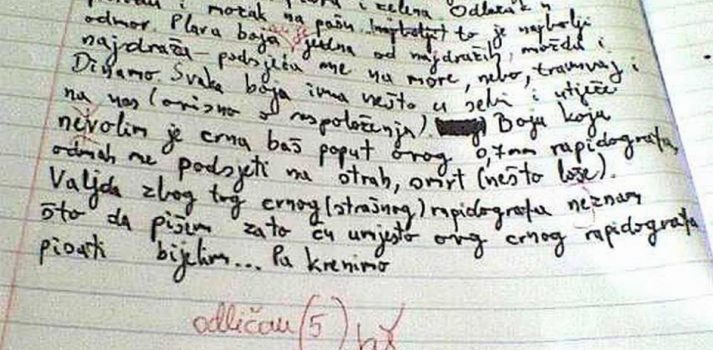 i mozak na pašu to je najbolji
odmor. Plava boja jedna od najdražih, možda i
najdraža – podsjeća me na more, nebo, tramvaj i
Dinamo. Svaka boja ima nešto u sebi i utječe
na nas (ovisno o raspoloženju). Boja koju
nevolim je crna baš poput ovog 0,7mm rapidografa,
odmah me podsjeti na strah, smrt (nešto loše).
Valjda zbog tog crnog (strašnog) rapidografa neznam
što da pišem zato ću umjesto ovog crnog rapidografa
pisati bijelim... Pa krenimo
odličan (5)